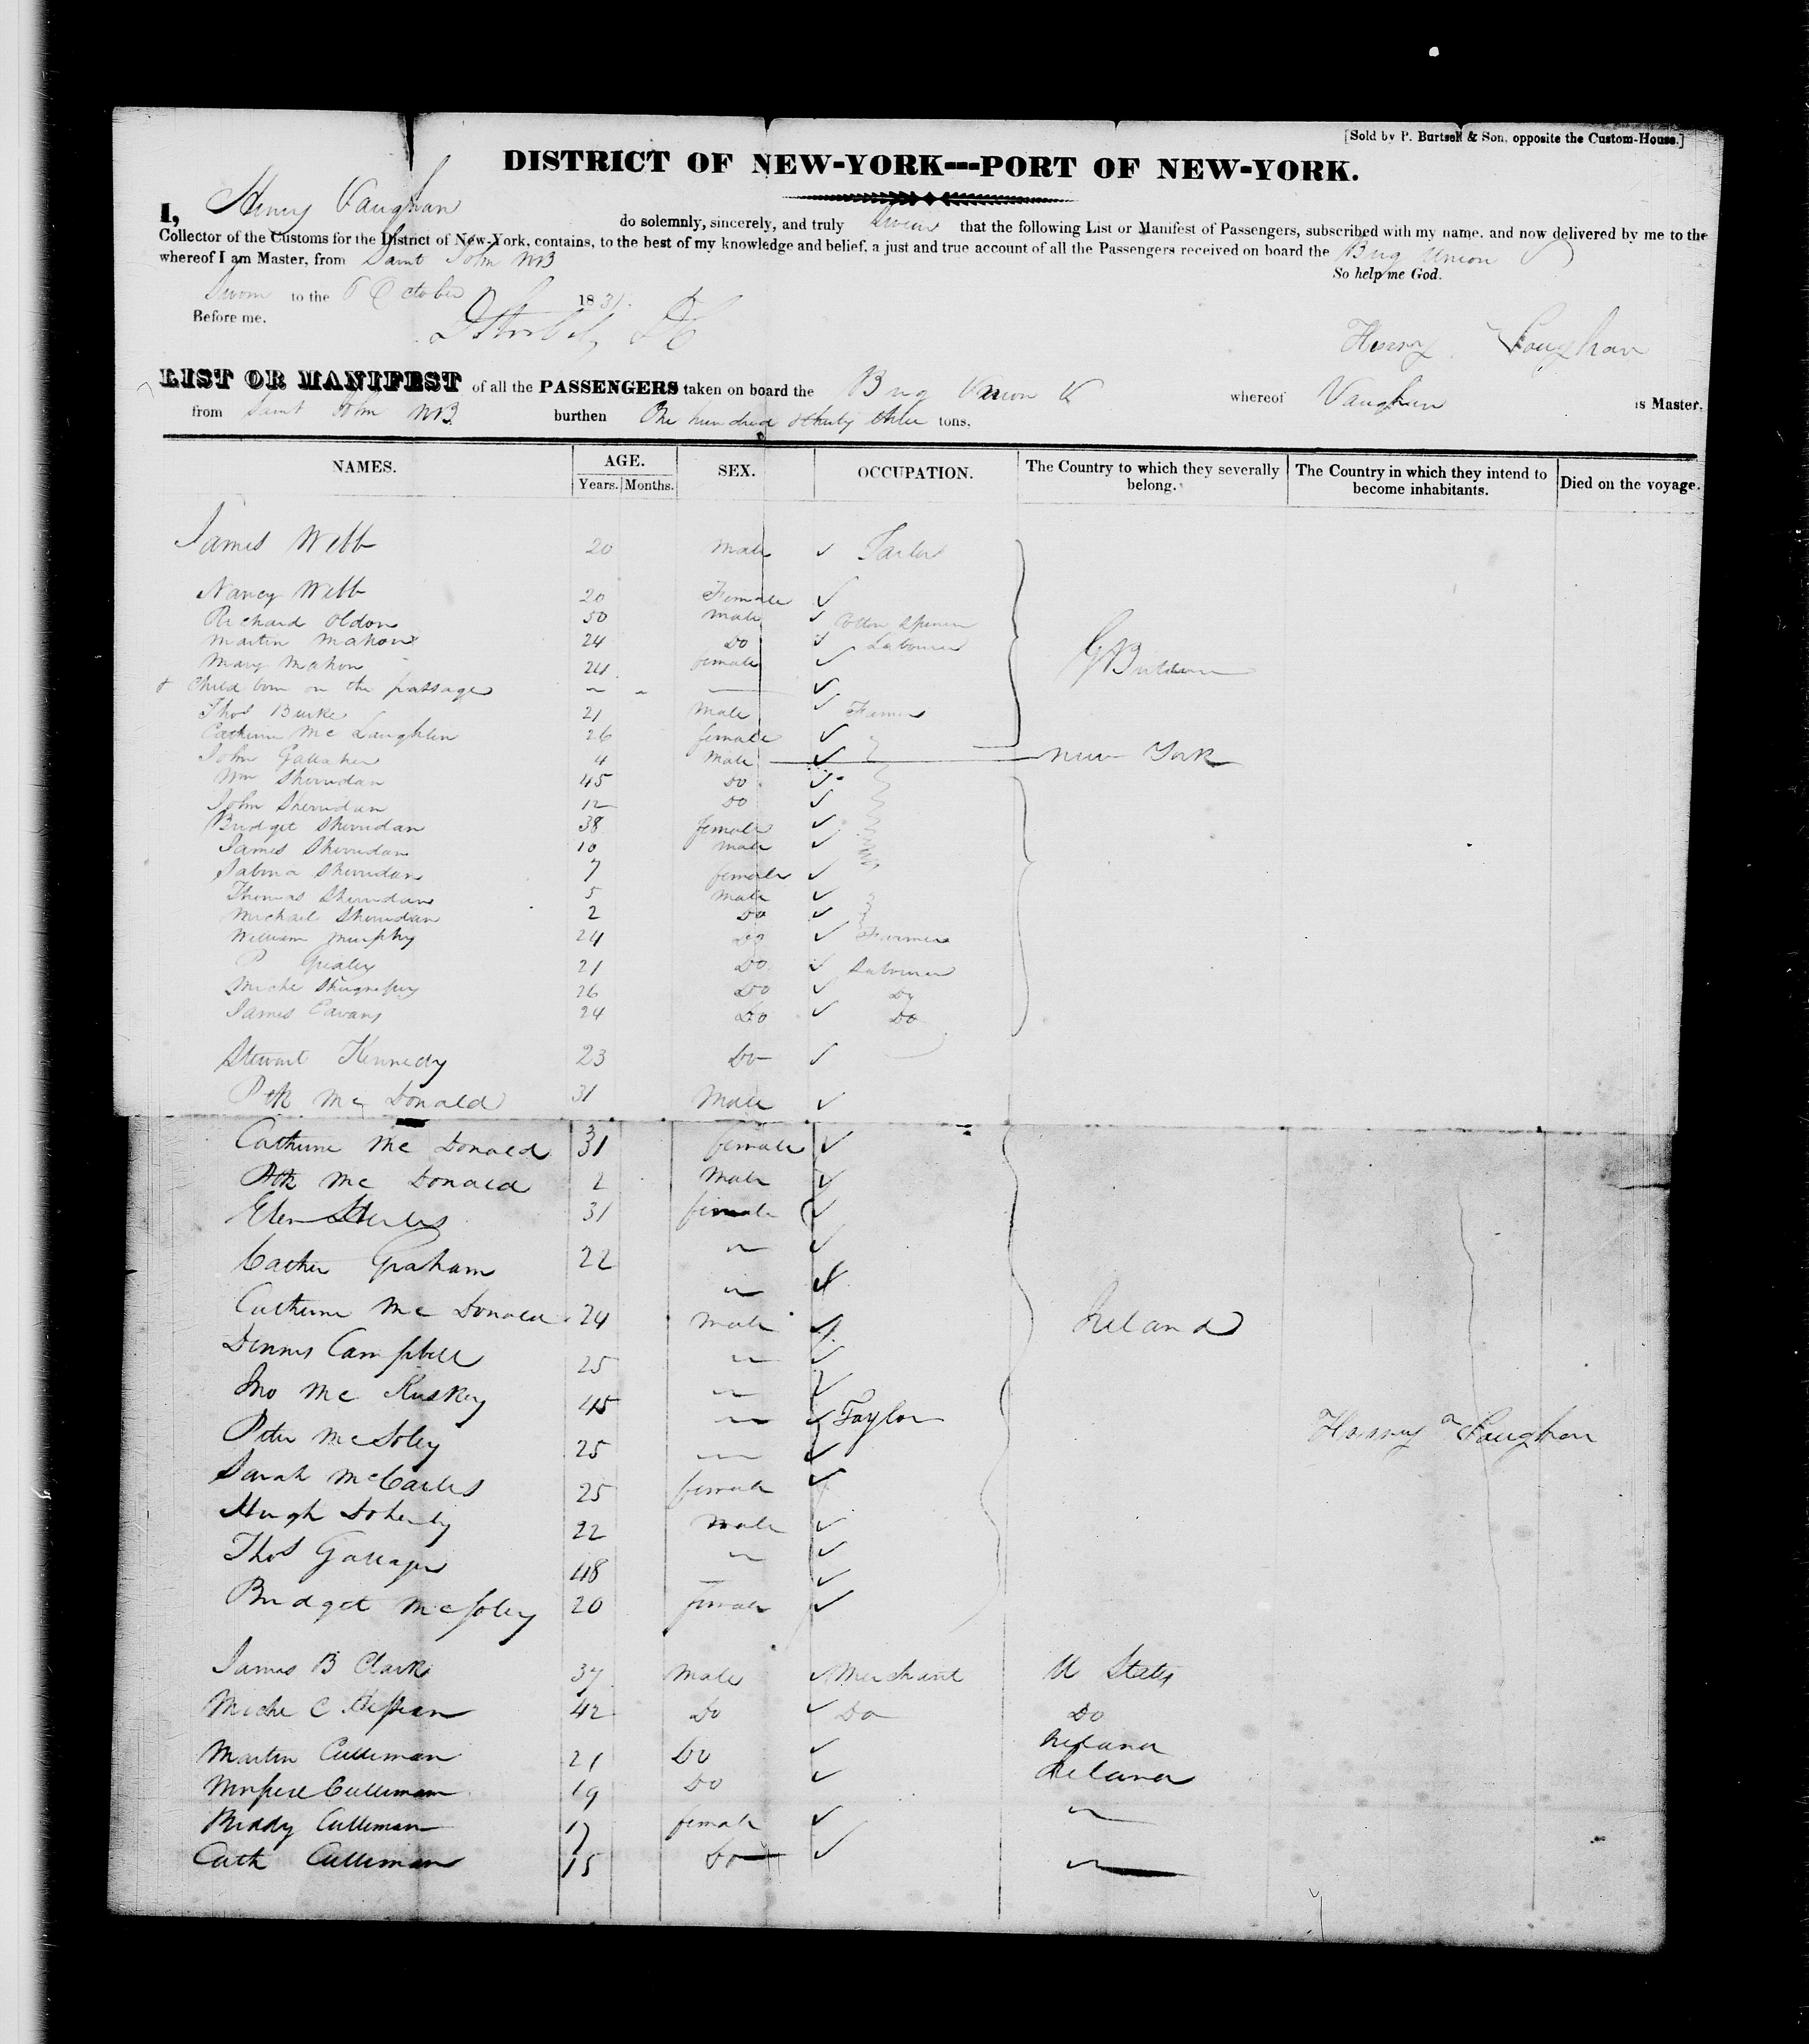 [Sold by P. Burtsell & Son, opposite the Custom-House.]
DISTRICT OF NEW-YORK---PORT OF NEW-YORK.
I, Henry Vaughan do solemnly, sincerely, and truly swear that the following List or Manifest of Passengers, subscribed with my name, and now delivered by me to the
Collector of the Customs for the District of New-York, contains, to the best of my knowledge and belief, a just and true account of all the Passengers received on board the Brig Union
whereof I am Master, from Saint John NB
So help me God.
Sworn to the 6 October 1831.
Before me.
Henry Vaughan
LIST OR MANIFEST of all the PASSENGERS taken on board the Brig Union whereof Vaughan is Master,
from Saint John NB burthen One hundred & thirty three tons.
NAMES. AGE. SEX. OCCUPATION. The Country to which they severally belong. The Country in which they intend to become inhabitants. Died on the voyage.
Years. Months.
James Webb 20 Male Tailor
Nancy Webb 20 Female
Richard Oldon 50 male Cotton Spinner
Martin Mahon 24 Do Labourer
Mary Mahon 24 female G Britain
+ Child born on the passage
Thos Burke 21 Male Farmer
Catherine Mc Laughlin 26 female
John Gallaher 4 Male New York
Wm Sherridan 45 Do
John Sherridan 12 Do
Bridget Sherridan 38 female
James Sherridan 10 male
Sabina Sherridan 7 female
Thomas Sherridan 5 Male
Michael Sherridan 2 Do
William Murphy 24 Do Farmer
P 21 Do Labourer
Miche 26 Do Do
James Cavans 24 Do Do
Stewart Kennedy 23 Do
Patk Mc Donald 31 Male
Catherine Mc Donald 31 female
Patk Mc Donald 2 Male
Elen 31 female
Cather Graham 22 "
Catherine Mc Donald 24 "
Male Ireland
Dennis Campbell 25 "
Jno Mc Kuskey 45 "
" Taylor
Peter McSoley 25 "
Henry Vaughan
Sarah McCarles 25 female
Hugh Doherty 22 Male
Thos Gallager 48 "
Bridget McSoley 20 female
James B Clark 37 Male Merchant U States
Miche C Hepean 42 Do Do Do
Martin Culliman 21 Do Ireland
Culliman 19 Do Ireland
Biddy Culliman 17 female "
Cath Culliman 15 Do "